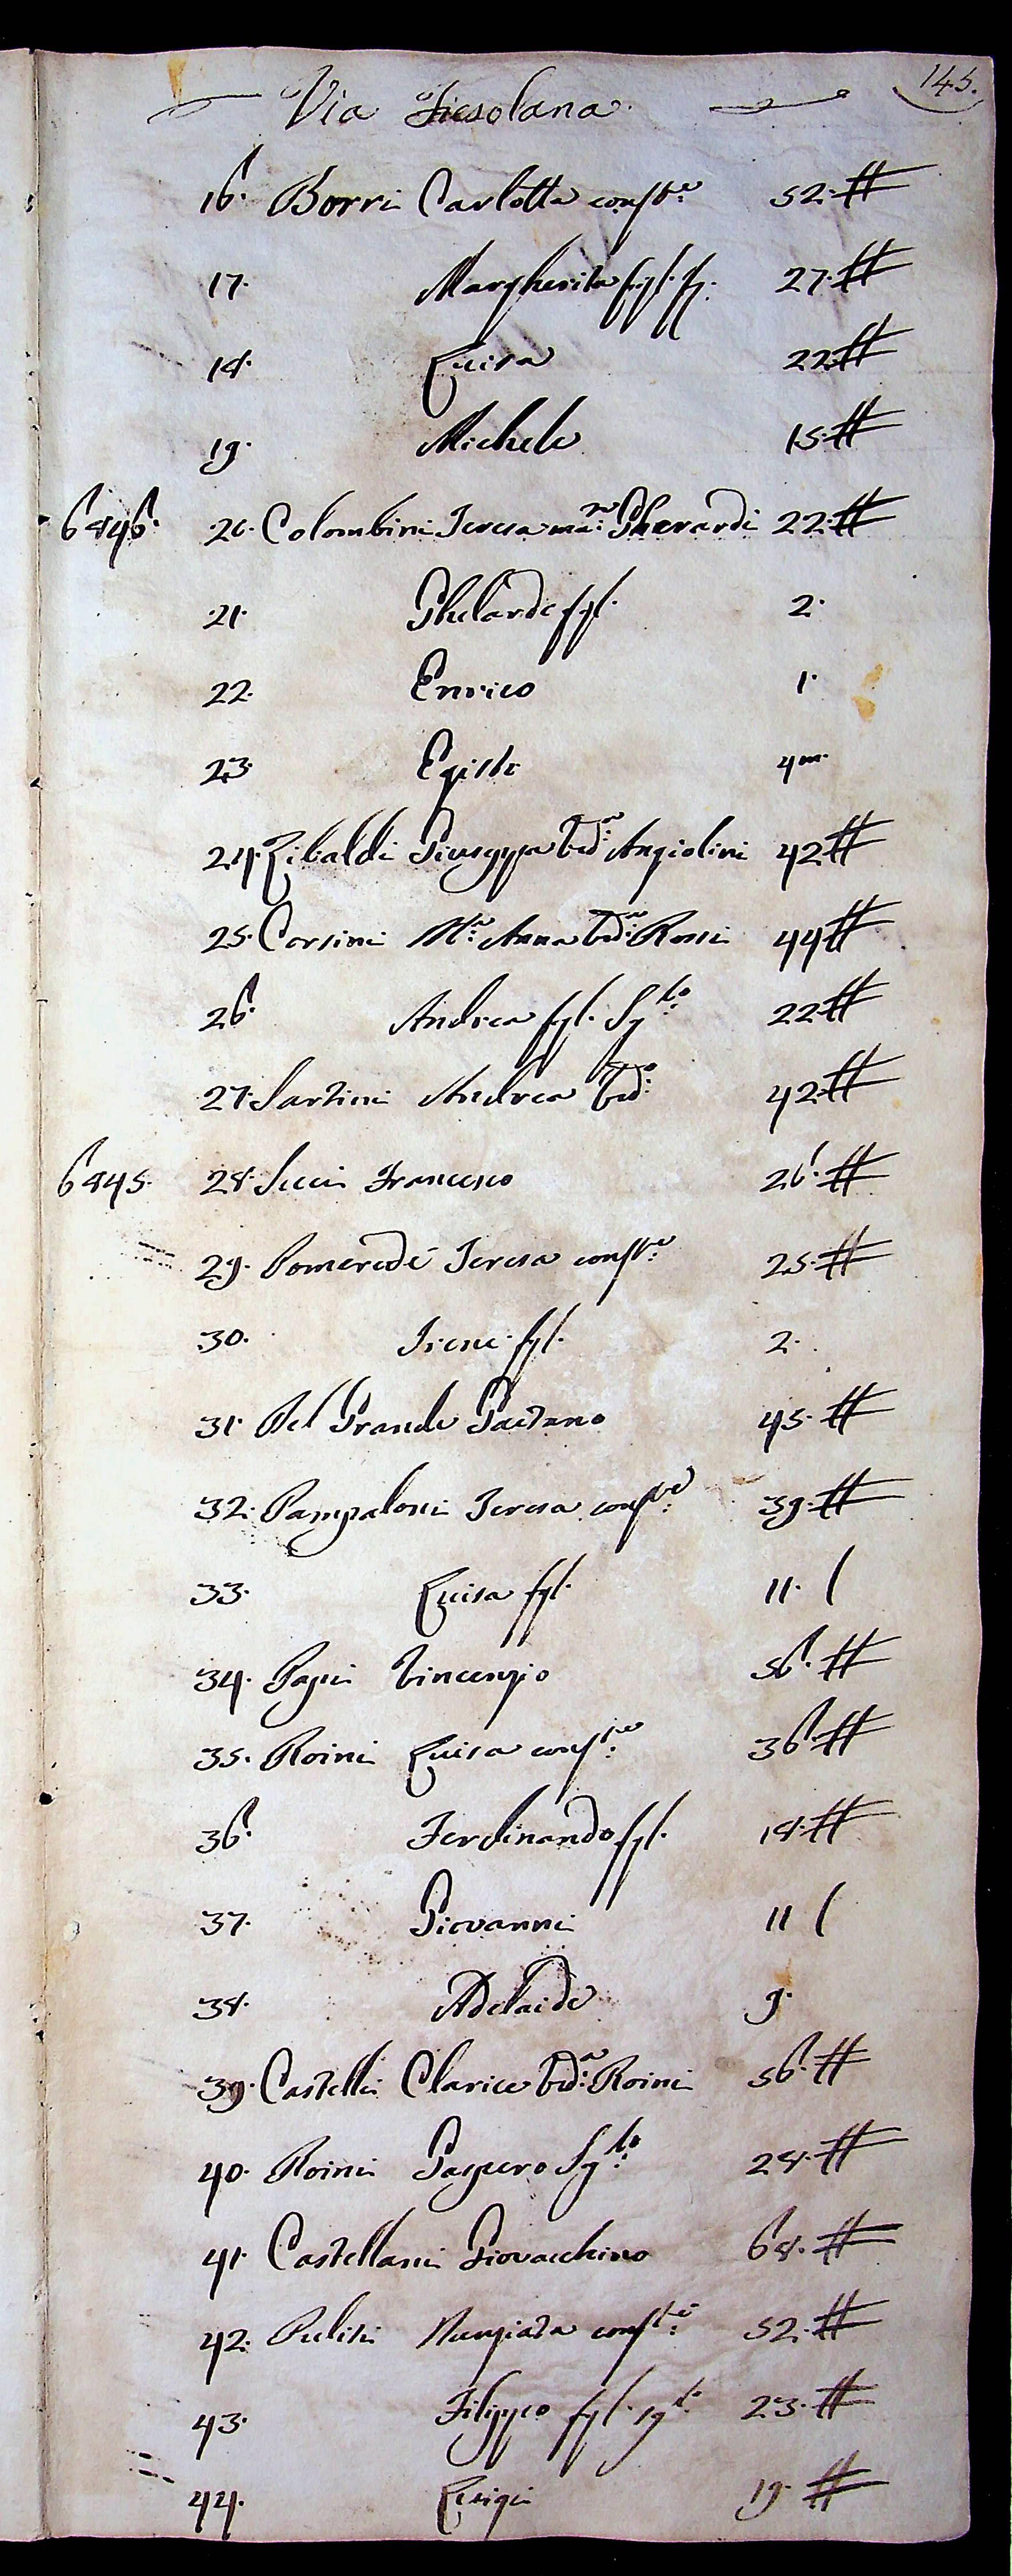 145.
Via Fiesolana
16. Borri Carlotta cons.te 52. #
17. Margherita figl. 27. #
18. Luisa 22 #
19. Michele 15. #
6846. 20. Colombini Teresa mar: Gherardi 22. #
21. Ghelardo figl. 2.
22. Enrico 1.
23. Egisto 4 m.
24. Ribaldi Giuseppa Ved.a Angiolini 42 #
25. Corsini M.a Anna Ved.a Rossi 44 #
26. Andrea figl. Sg.lo 22 #
27. Sartini Andrea Ved.o 42 #
6845. 28. Succi Francesco 26. #
29. Pomeredé Teresa cons.te 25. #
30. Irene figl. 2.
31. Del Grande Gaetano 45. #
32. Pampaloni Teresa cons.te 39. #
33. Luisa figl. 11. /
34. Papi Vincenzio 56. #
35. Roini Luisa cons.te 36. #
36. Ferdinando figl. 18. #
37. Giovanni 11 /
38. Adelaide 9.
39. Castelli Clarice Ved.a Roini 56. #
40. Roini Gaspero Sg.lo 28. #
41. Castellani Giovacchino 68. #
42. Puliti Nunziata cons.te 52. #
43. Filippo figl. sg.lo 23. #
44. Luigi 19. #